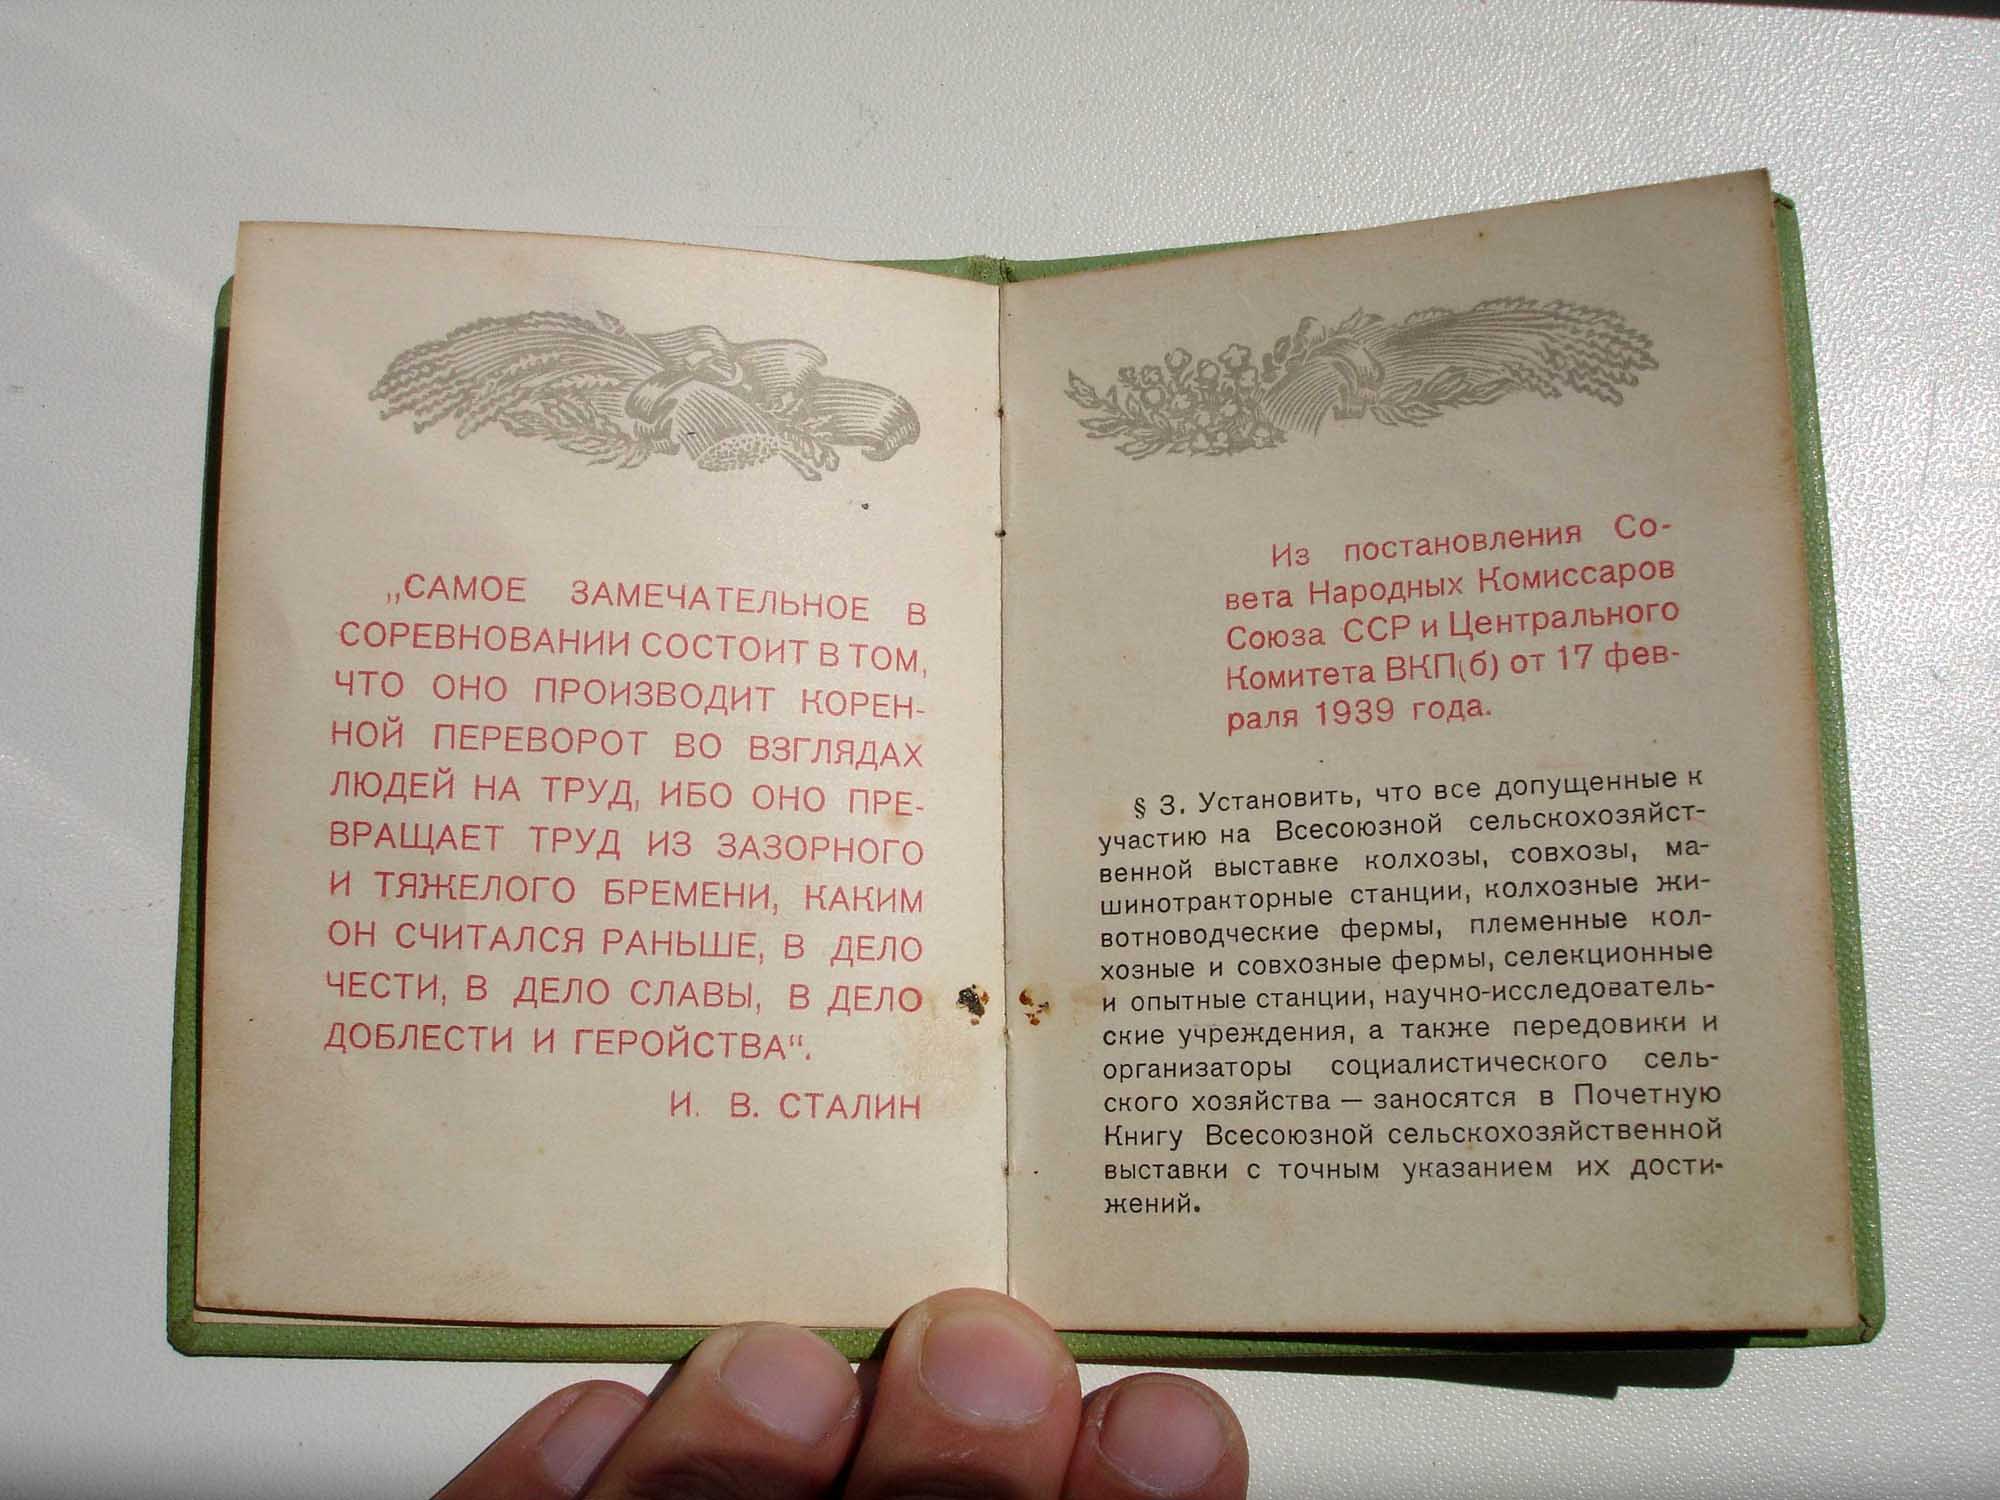 „САМОЕ ЗАМЕЧАТЕЛЬНОЕ В
СОРЕВНОВАНИИ СОСТОИТ В ТОМ,
ЧТО ОНО ПРОИЗВОДИТ КОРЕН-
НОЙ ПЕРЕВОРОТ ВО ВЗГЛЯДАХ
ЛЮДЕЙ НА ТРУД, ИБО ОНО ПРЕ-
ВРАЩАЕТ ТРУД ИЗ ЗАЗОРНОГО
И ТЯЖЕЛОГО БРЕМЕНИ, КАКИМ
ОН СЧИТАЛСЯ РАНЬШЕ, В ДЕЛО
ЧЕСТИ, В ДЕЛО СЛАВЫ, В ДЕЛО
ДОБЛЕСТИ И ГЕРОЙСТВА“.
И. В. СТАЛИН
Из постановления Со-
вета Народных Комиссаров
Союза ССР и Центрального
Комитета ВКП(б) от 17 фев-
раля 1939 года.
§ 3. Установить, что все допущенные к
участию на Всесоюзной сельскохозяйст-
венной выставке колхозы, совхозы, ма-
шинотракторные станции, колхозные жи-
вотноводческие фермы, племенные кол-
хозные и совхозные фермы, селекционные
и опытные станции, научно-исследователь-
ские учреждения, а также передовики и
организаторы социалистического сель-
ского хозяйства — заносятся в Почетную
Книгу Всесоюзной сельскохозяйственной
выставки с точным указанием их дости-
жений.